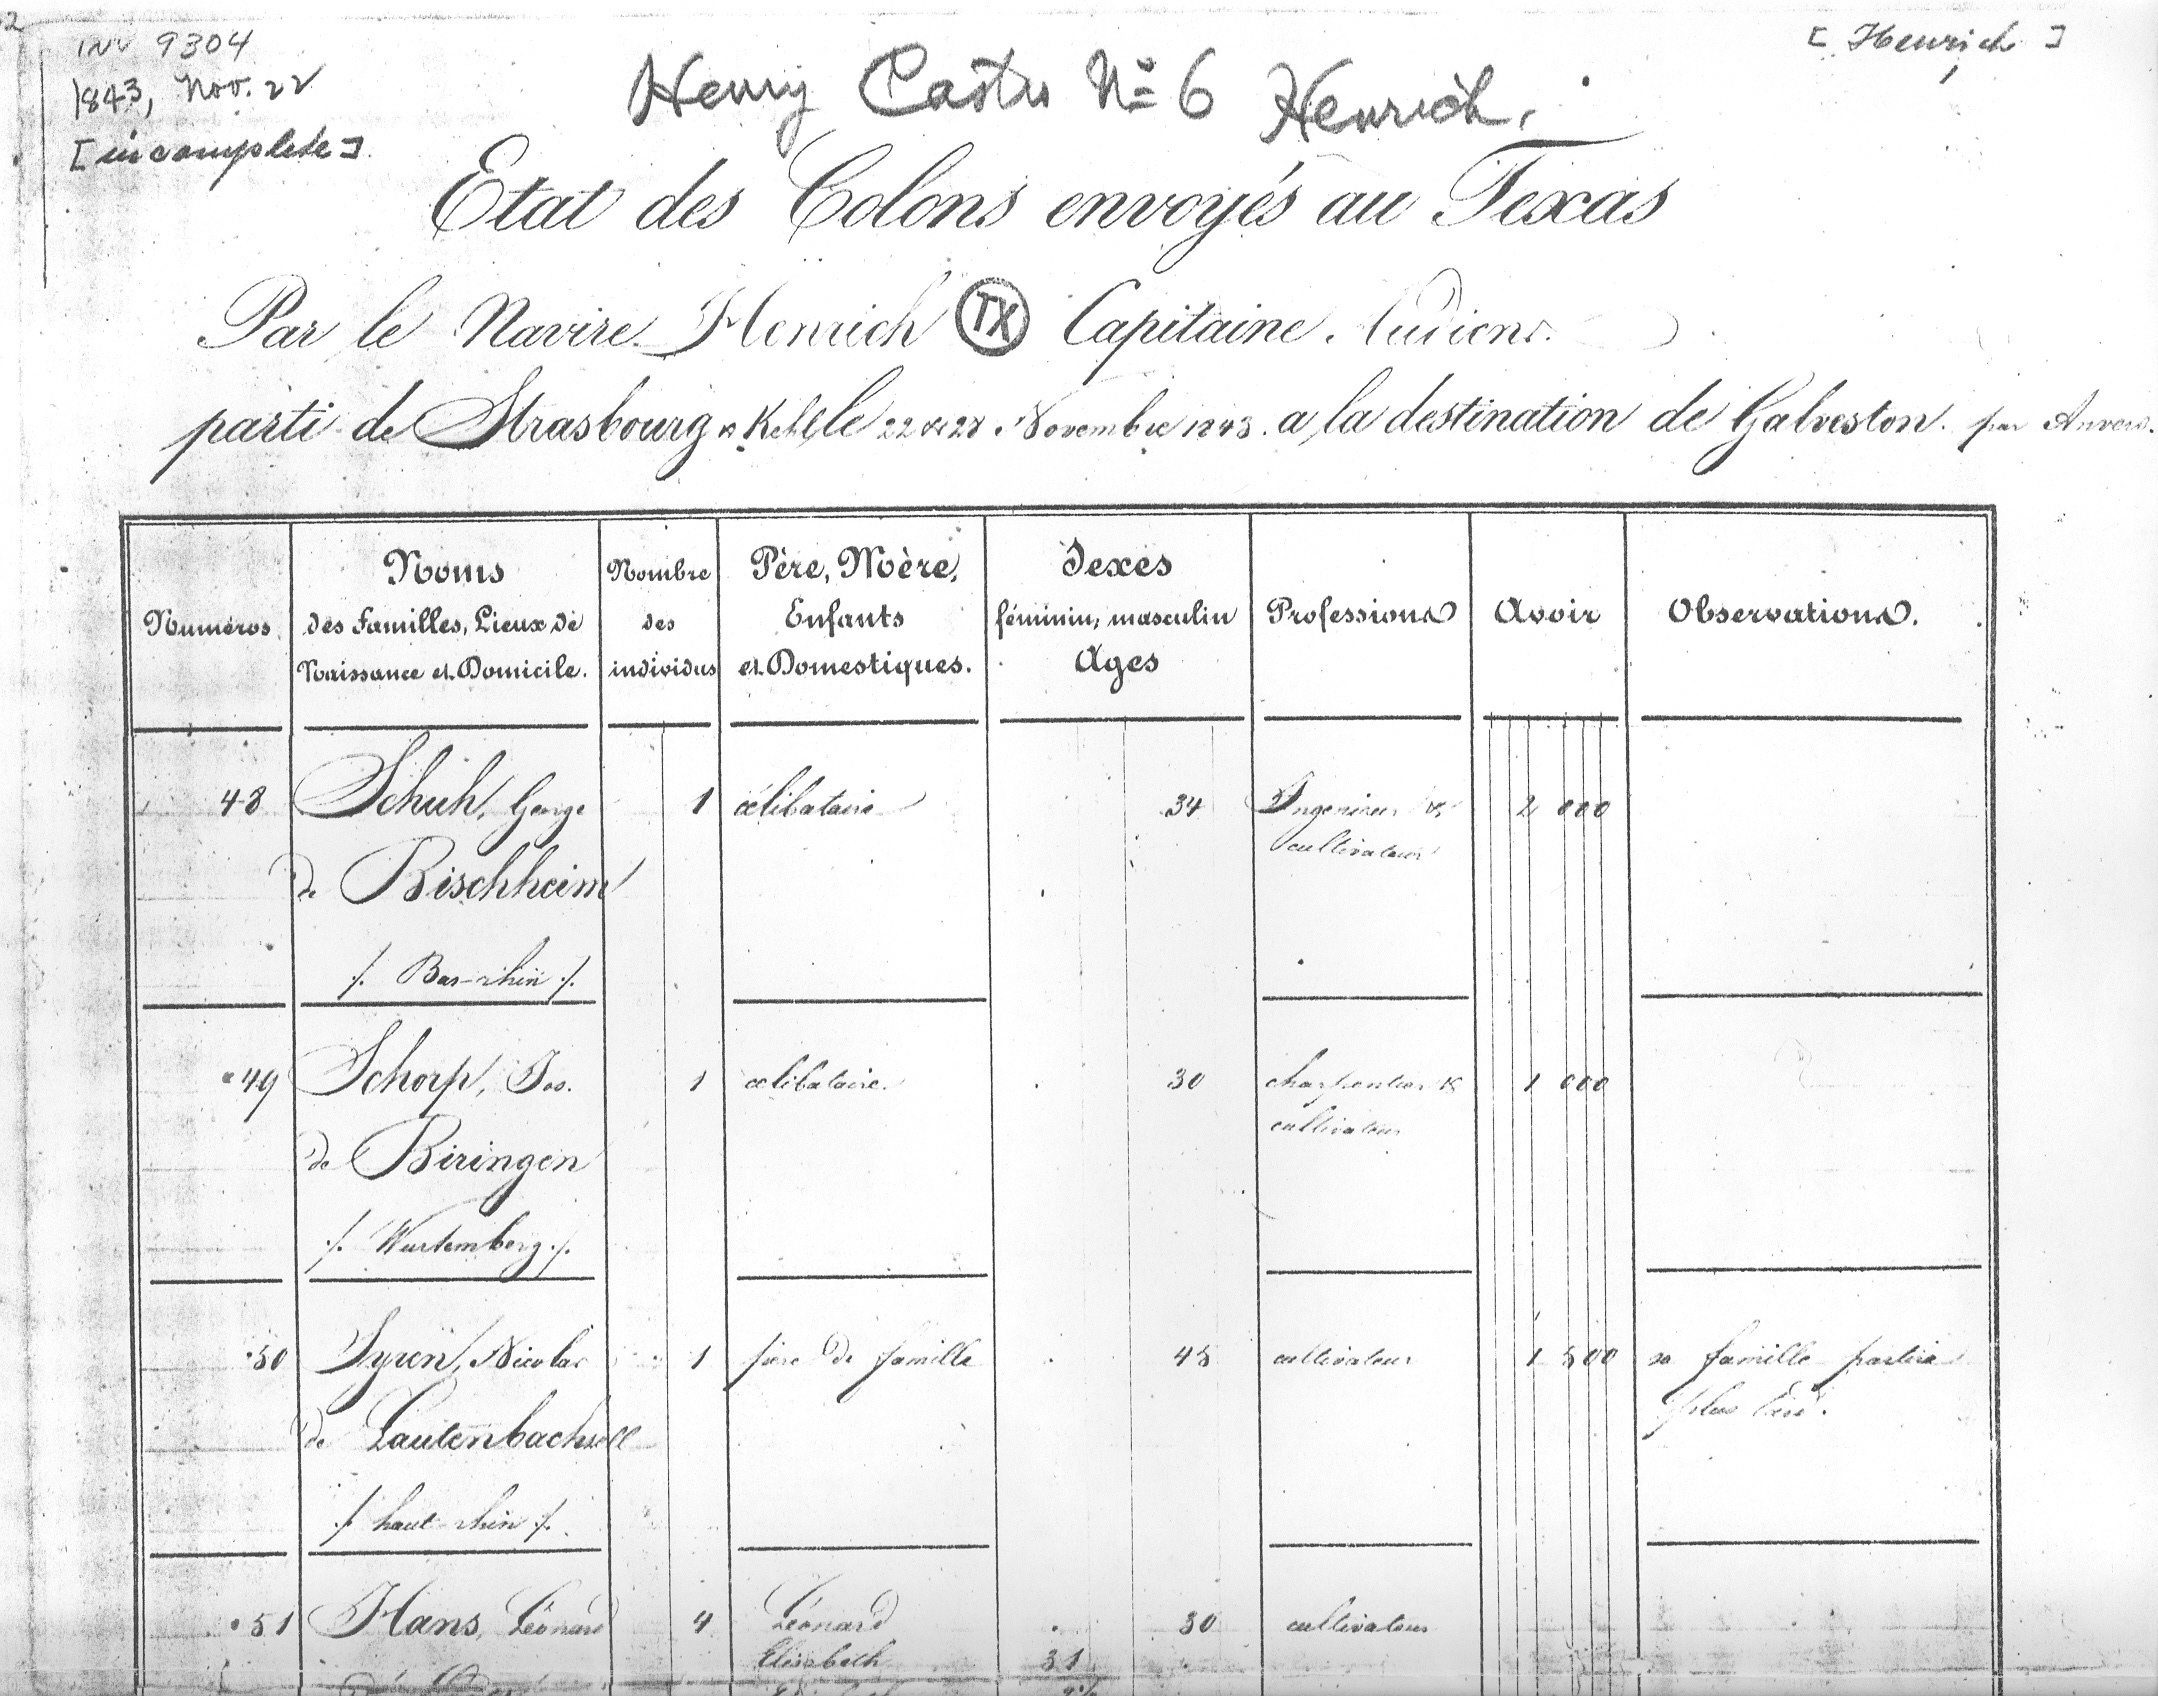 INV 9304
1843, Nov. 22
[incomplete]
[Henrich]
Henry Castro No 6 Henrich.
Etat des Colons envoyés au Texas
Par le Navire Henrich TX Capitaine
parti de Strasbourg & Kehl le 22 & 28 Novembre 1843. a la destination de Galveston. par Anvers.
Numéros
Noms
des Familles, Lieux de
Naissance et Domicile.
Nombre
des
individus
Père, Mère,
Enfants
et Domestiques.
Sexes
féminin, masculin
Ages
Professions
Avoir
Observations.
48 Schuh, George 1 célibataire 34 Ingenieur & 2 000
cultivateur
de Bischheim
/. Bas-rhin /.
49 Schorp, Jos. 1 célibataire. 30 charpentier & 1 000
cultivateur
de Biringen
/. Wurtemberg /.
50 Syren, Nicolas 1 père de famille 45 cultivateur 1 500 sa famille partira
plus tard.
de Lautenbachzell
/. haut-rhin /.
51 Hans, Léonard 4 Léonard 30 cultivateur
Elisabeth 31